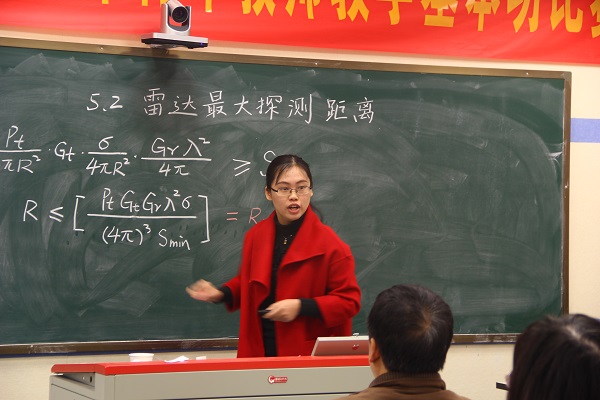 教师教学基本功比赛
5.2 雷达最大探测距离
Pt/πR² · Gt · σ/4πR² · Grλ²/4π ≥ S
R ≤ [PtGtGrλ²σ/(4π)³Smin] = R